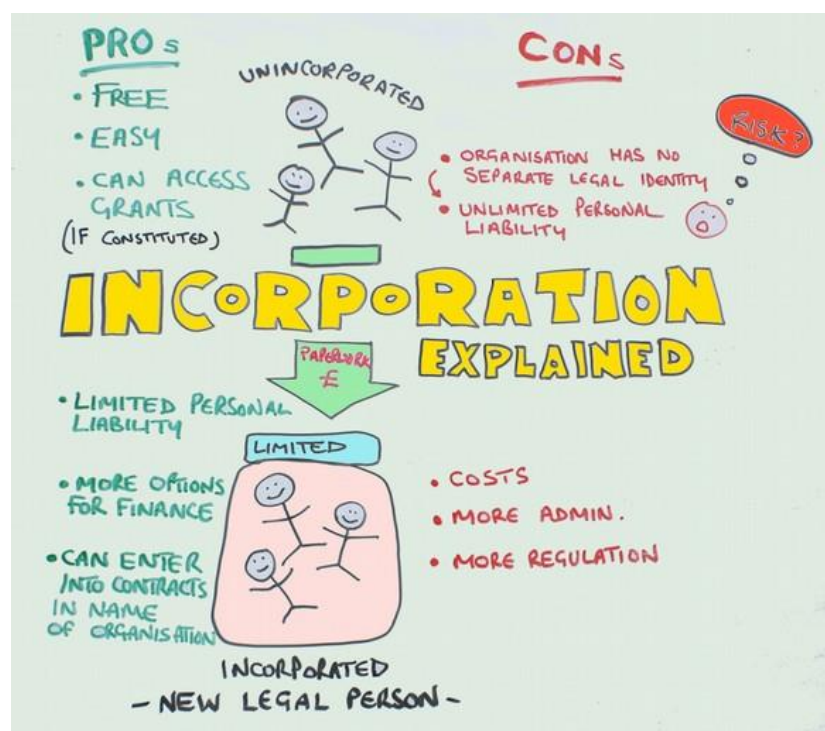 PROs
• FREE
• EASY
• CAN ACCESS
GRANTS
(IF CONSTITUTED)
UNINCORPORATED
CONs
• ORGANISATION HAS NO
SEPARATE LEGAL IDENTITY
• UNLIMITED PERSONAL
LIABILITY
RISK?
INCORPORATION
EXPLAINED
PAPERWORK
£
• LIMITED PERSONAL
LIABILITY
• MORE OPTIONS
FOR FINANCE
• CAN ENTER
INTO CONTRACTS
IN NAME
OF ORGANISATION
LIMITED
• COSTS
• MORE ADMIN.
• MORE REGULATION
INCORPORATED
- NEW LEGAL PERSON -